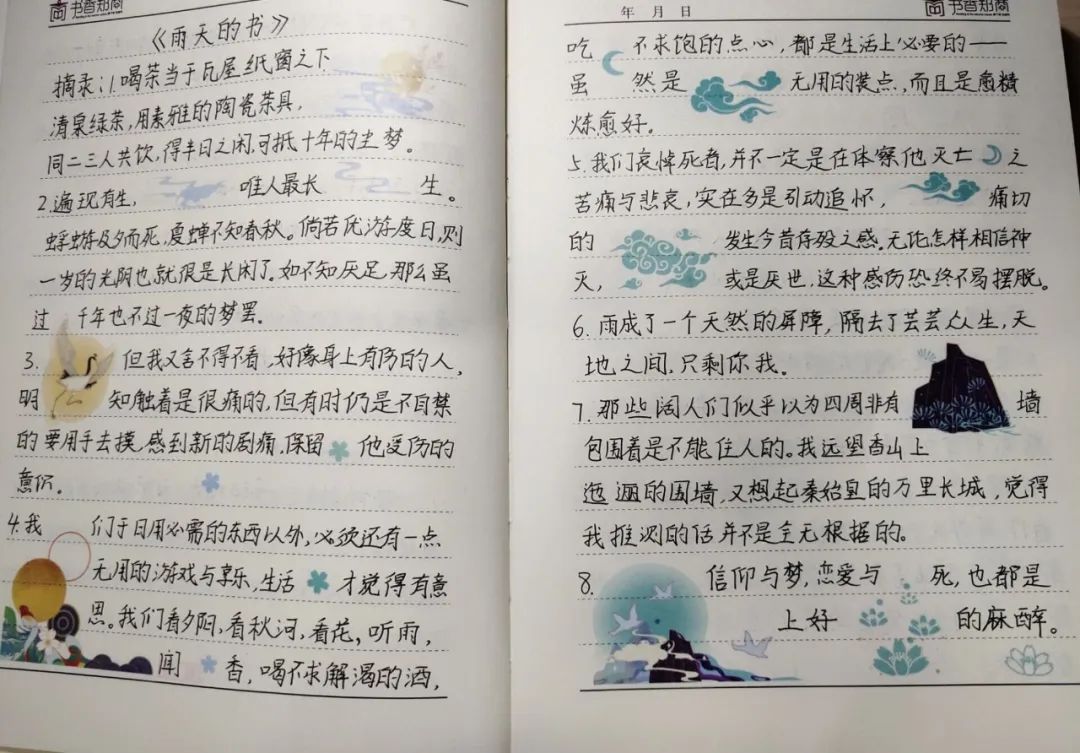 书香知阁
《雨天的书》
摘录:1.喝茶当于瓦屋纸窗之下
清泉绿茶,用素雅的陶瓷茶具,
同二三人共饮,得半日之闲,可抵十年的尘梦。
2.遍现有生, 唯人最长 生。
蜉蝣及夕而死,夏蝉不知春秋。倘若优游度日,则
一岁的光阴也就很是长闲了。如不知厌足,那么虽
过 千年也不过一夜的梦罢.
3. 但我又言不得不看,好像身上有伤的人,
明 知触着是很痛的,但有时仍是不自禁
的要用手去摸,感到新的剧痛,保留 他受伤的
意识。
4.我 们于日用必需的东西以外,必须还有一点
无用的游戏与享乐,生活 才觉得有意
思。我们看夕阳,看秋河,看花,听雨,
闻 香,喝不求解渴的酒,
年 月 日
吃 不求饱的点心,都是生活上必要的——
虽 然是 无用的装点,而且是愈精
炼愈好。
5.我们哀悼死者,并不一定是在体察他灭亡 之
苦痛与悲哀,实在多是引动追怀, 痛切
的 发生今昔存殁之感。无论怎样相信神
灭, 或是厌世,这种感伤恐终不易摆脱。
6.雨成了一个天然的屏障,隔去了芸芸众生,天
地之间.只剩你我。
7.那些阔人们似乎以为四周非有 墙
包围着是不能住人的。我远望香山上
迤逦的围墙,又想起秦始皇的万里长城,觉得
我推测的话并不是全无根据的。
8. 信仰与梦,恋爱与 死,也都是
上好 的麻醉。